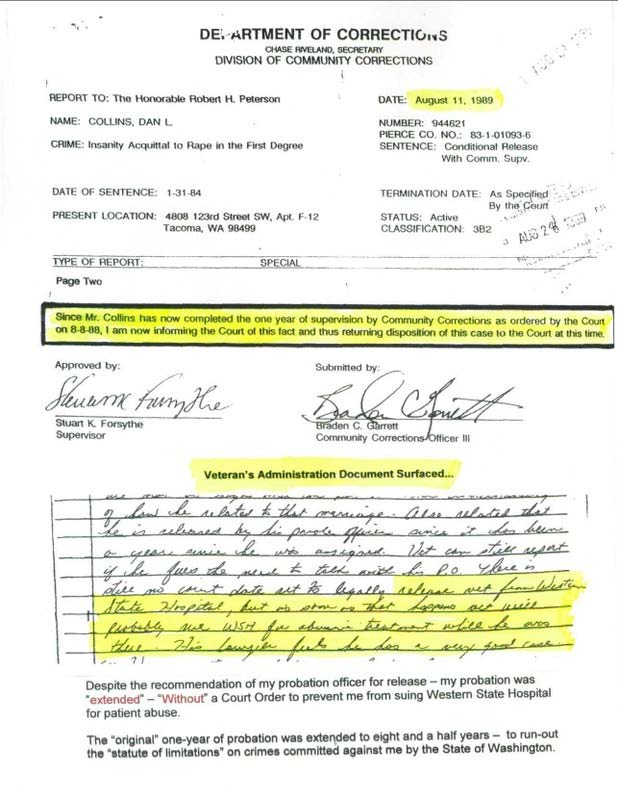 DEPARTMENT OF CORRECTIONS
CHASE RIVELAND, SECRETARY
DIVISION OF COMMUNITY CORRECTIONS
REPORT TO: The Honorable Robert H. Peterson
DATE: August 11, 1989
NAME: COLLINS, DAN L.
NUMBER: 944621
PIERCE CO. NO.: 83-1-01093-6
CRIME: Insanity Acquittal to Rape in the First Degree
SENTENCE: Conditional Release
With Comm. Supv.
DATE OF SENTENCE: 1-31-84
TERMINATION DATE: As Specified
By the Court
PRESENT LOCATION: 4808 123rd Street SW, Apt. F-12
Tacoma, WA 98499
STATUS: Active
CLASSIFICATION: 3B2
AUG 28 1989
TYPE OF REPORT: SPECIAL
Page Two
Since Mr. Collins has now completed the one year of supervision by Community Corrections as ordered by the Court
on 8-8-88, I am now informing the Court of this fact and thus returning disposition of this case to the Court at this time.
Approved by:
Submitted by:
Stuart K. Forsythe
Supervisor
Braden C. Garrett
Community Corrections Officer III
Veteran's Administration Document Surfaced...
of how he related to that marriage. Also related that
he is released by his parole officer since it has been
a year since he was assigned. Vet can still report
if he feels the need to talk with his P.O. There is
still no court date set to legally release vet from Western
State Hospital, but as soon as that happens vet will
probably sue WSH for abusive treatment while he was
there. His lawyer feels he has a very good case.
Despite the recommendation of my probation officer for release – my probation was
"extended" – "Without" a Court Order to prevent me from suing Western State Hospital
for patient abuse.
The "original" one-year of probation was extended to eight and a half years – to run-out
the "statute of limitations" on crimes committed against me by the State of Washington.